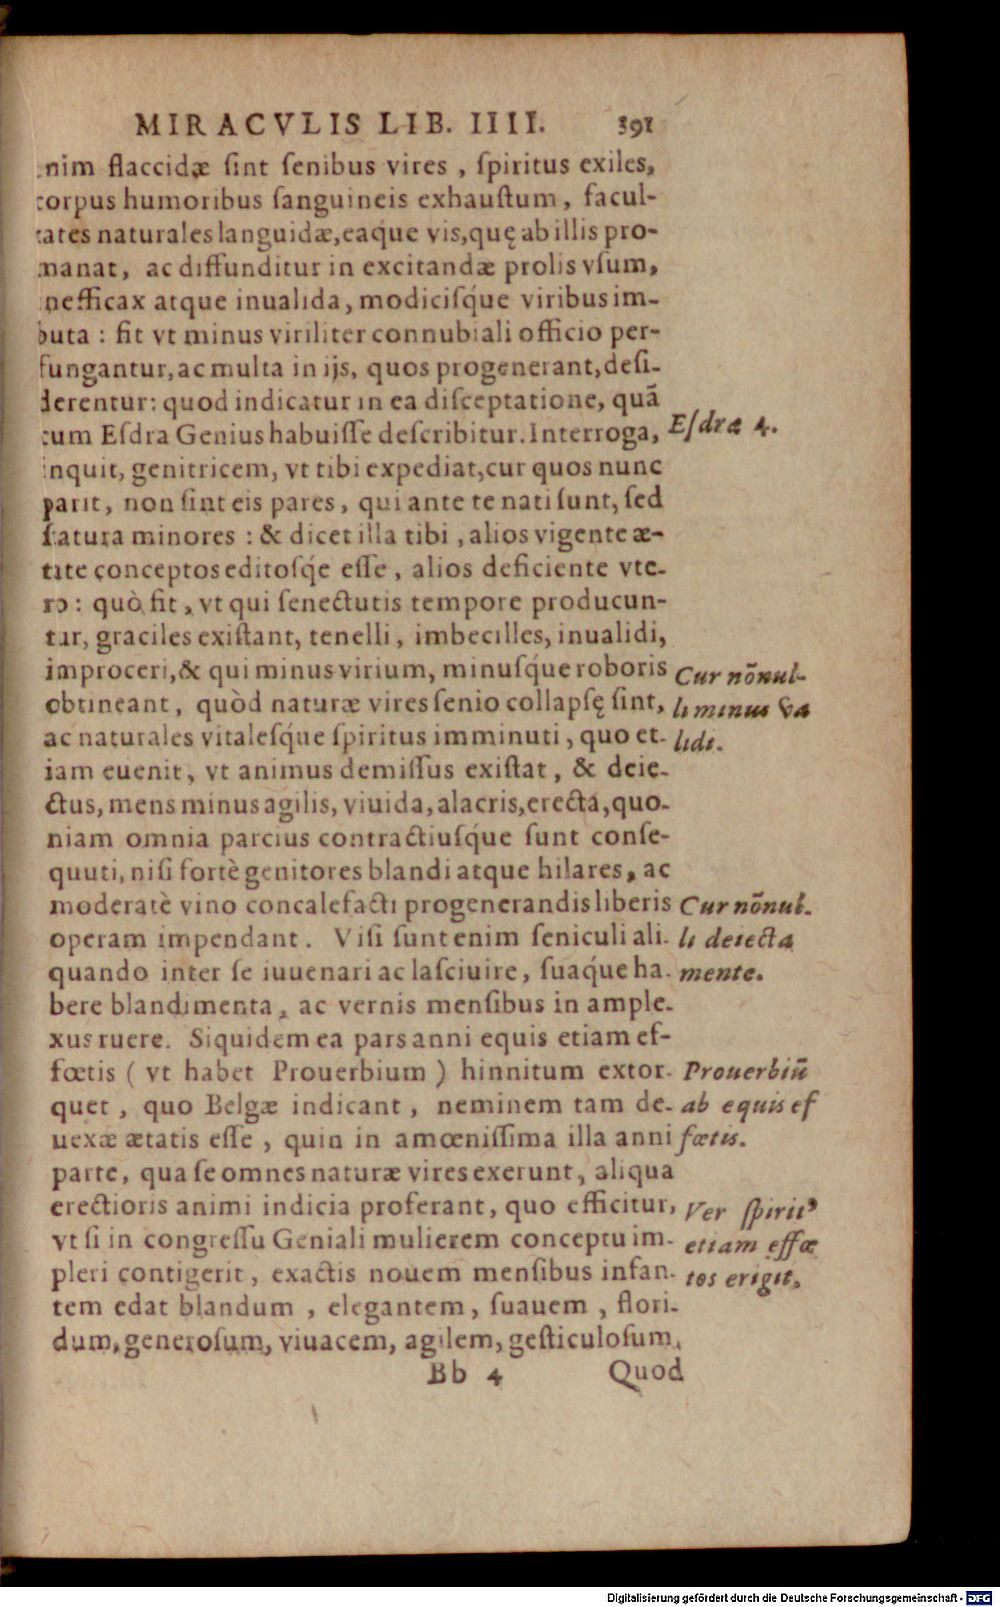 MIRACVLIS LIB. IIII. 391
nim flaccidæ ſint ſenibus vires, ſpiritus exiles,
corpus humoribus ſanguineis exhauſtum, facul-
tates naturales languidæ, eaq́ue vis, quę ab illis pro-
manat, ac diffunditur in excitandæ prolis vſum,
inefficax atque inualida, modiciſq́ue viribus im-
buta: fit vt minus viriliter connubiali officio per-
fungantur, ac multa in ijs, quos progenerant, deſi-
derentur: quod indicatur in ea diſceptatione, quã
cum Eſdra Genius habuiſſe deſcribitur. Interroga,
Eſdræ 4.
inquit, genitricem, vt tibi expediat, cur quos nunc
parit, non ſint eis pares, qui ante te nati ſunt, ſed
ſtatura minores: & dicet illa tibi, alios vigente æ-
tate conceptos editoſq́e eſſe, alios deficiente vte-
ro: quò fit, vt qui ſenectutis tempore producun-
tur, graciles exiſtant, tenelli, imbecilles, inualidi,
improceri, & qui minus virium, minuſq́ue roboris
Cur nõnul-
obtineant, quòd naturæ vires ſenio collapſę ſint,
li minus va
ac naturales vitaleſq́ue ſpiritus imminuti, quo et-
lidi.
iam euenit, vt animus demiſſus exiſtat, & deie-
ctus, mens minus agilis, viuida, alacris, erecta, quo-
niam omnia parcius contractiuſq́ue ſunt conſe-
quuti, niſi fortè genitores blandi atque hilares, ac
moderatè vino concalefacti progenerandis liberis
Cur nõnul.
operam impendant. Viſi ſunt enim ſeniculi ali-
li deiecta
quando inter ſe iuuenari ac laſciuire, ſuaq́ue ha-
mente.
bere blandimenta, ac vernis menſibus in ample-
xus ruere. Siquidem ea pars anni equis etiam ef-
fœtis (vt habet Prouerbium) hinnitum extor-
Prouerbiũ
quet, quo Belgæ indicant, neminem tam de-
ab equis ef
uexæ ætatis eſſe, quin in amœniſſima illa anni
fœtis.
parte, qua ſe omnes naturæ vires exerunt, aliqua
erectioris animi indicia proferant, quo efficitur,
Ver ſpirit᾽
vt ſi in congreſſu Geniali mulierem conceptu im-
etiam effœ
pleri contigerit, exactis nouem menſibus infan-
tos erigit.
tem edat blandum, elegantem, ſuauem, flori-
dum, generoſum, viuacem, agilem, geſticuloſum.
Bb 4 Quod
Digitalisierung gefördert durch die Deutsche Forschungsgemeinschaft - DFG